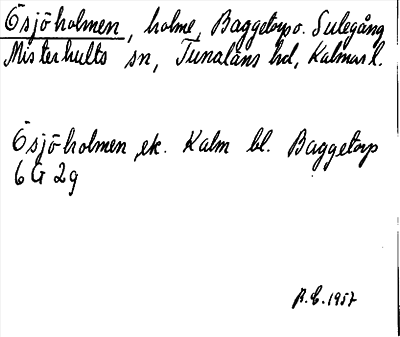 Ösjöholmen, holme, Baggetorp o. Sulegång
Misterhults sn, Tunaläns hd, Kalmar l.
Ösjöholmen, ek. Kalm bl. Baggetorp
6 G 2g
R.E. 1957